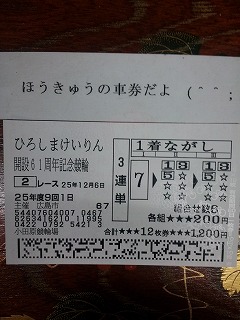 ほうきゅうの車券だよ (^^;
ひろしまけいりん
開設61周年記念競輪
2 レース 25年12月6日
25年度9回1日
主催 広島市 67
小田原競輪場
3連単
1着ながし
7
1 9
5 ☆
☆ ☆
☆ ☆
1 9
5 ☆
☆ ☆
☆ ☆
組合せ数6
各組★★★200円
合計★★★12枚券★★★1,200円